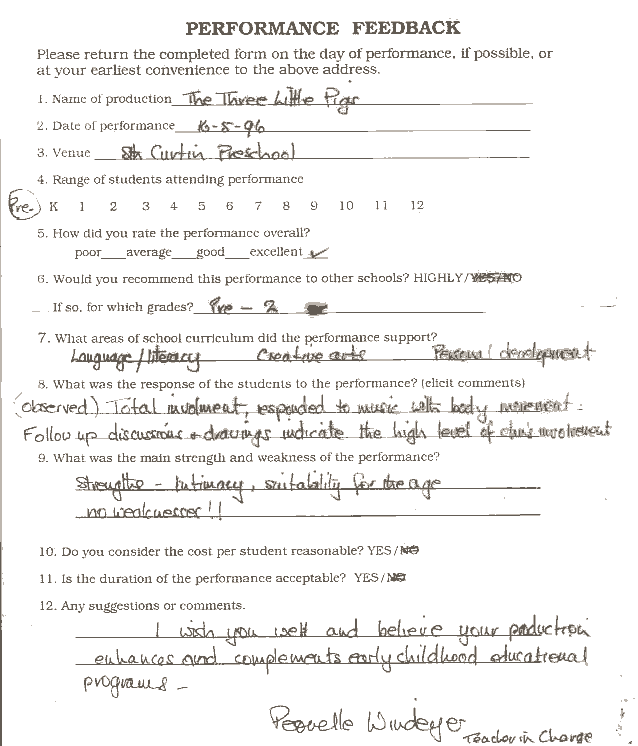 PERFORMANCE FEEDBACK
Please return the completed form on the day of performance, if possible, or
at your earliest convenience to the above address.
1. Name of production The Three Little Pigs
2. Date of performance 16-8-96
3. Venue Sth Curtin Preschool
4. Range of students attending performance
Pre. K 1 2 3 4 5 6 7 8 9 10 11 12
5. How did you rate the performance overall?
poor average good excellent ✓
6. Would you recommend this performance to other schools? HIGHLY/YES/NO
If so, for which grades? Pre - 2
7. What areas of school curriculum did the performance support?
Language/literacy Creative arts Personal development
8. What was the response of the students to the performance? (elicit comments)
(observed) Total involment, responded to music with body movement.
Follow up discussions + drawings indicate the high level of chn's involvement
9. What was the main strength and weakness of the performance?
Strengths - Intimacy, suitability for the age
no weaknesses!!
10. Do you consider the cost per student reasonable? YES/NO
11. Is the duration of the performance acceptable? YES/NO
12. Any suggestions or comments.
I wish you well and believe your production
enhances and complements early childhood educational
programs -
Windeyer
Teacher in Charge